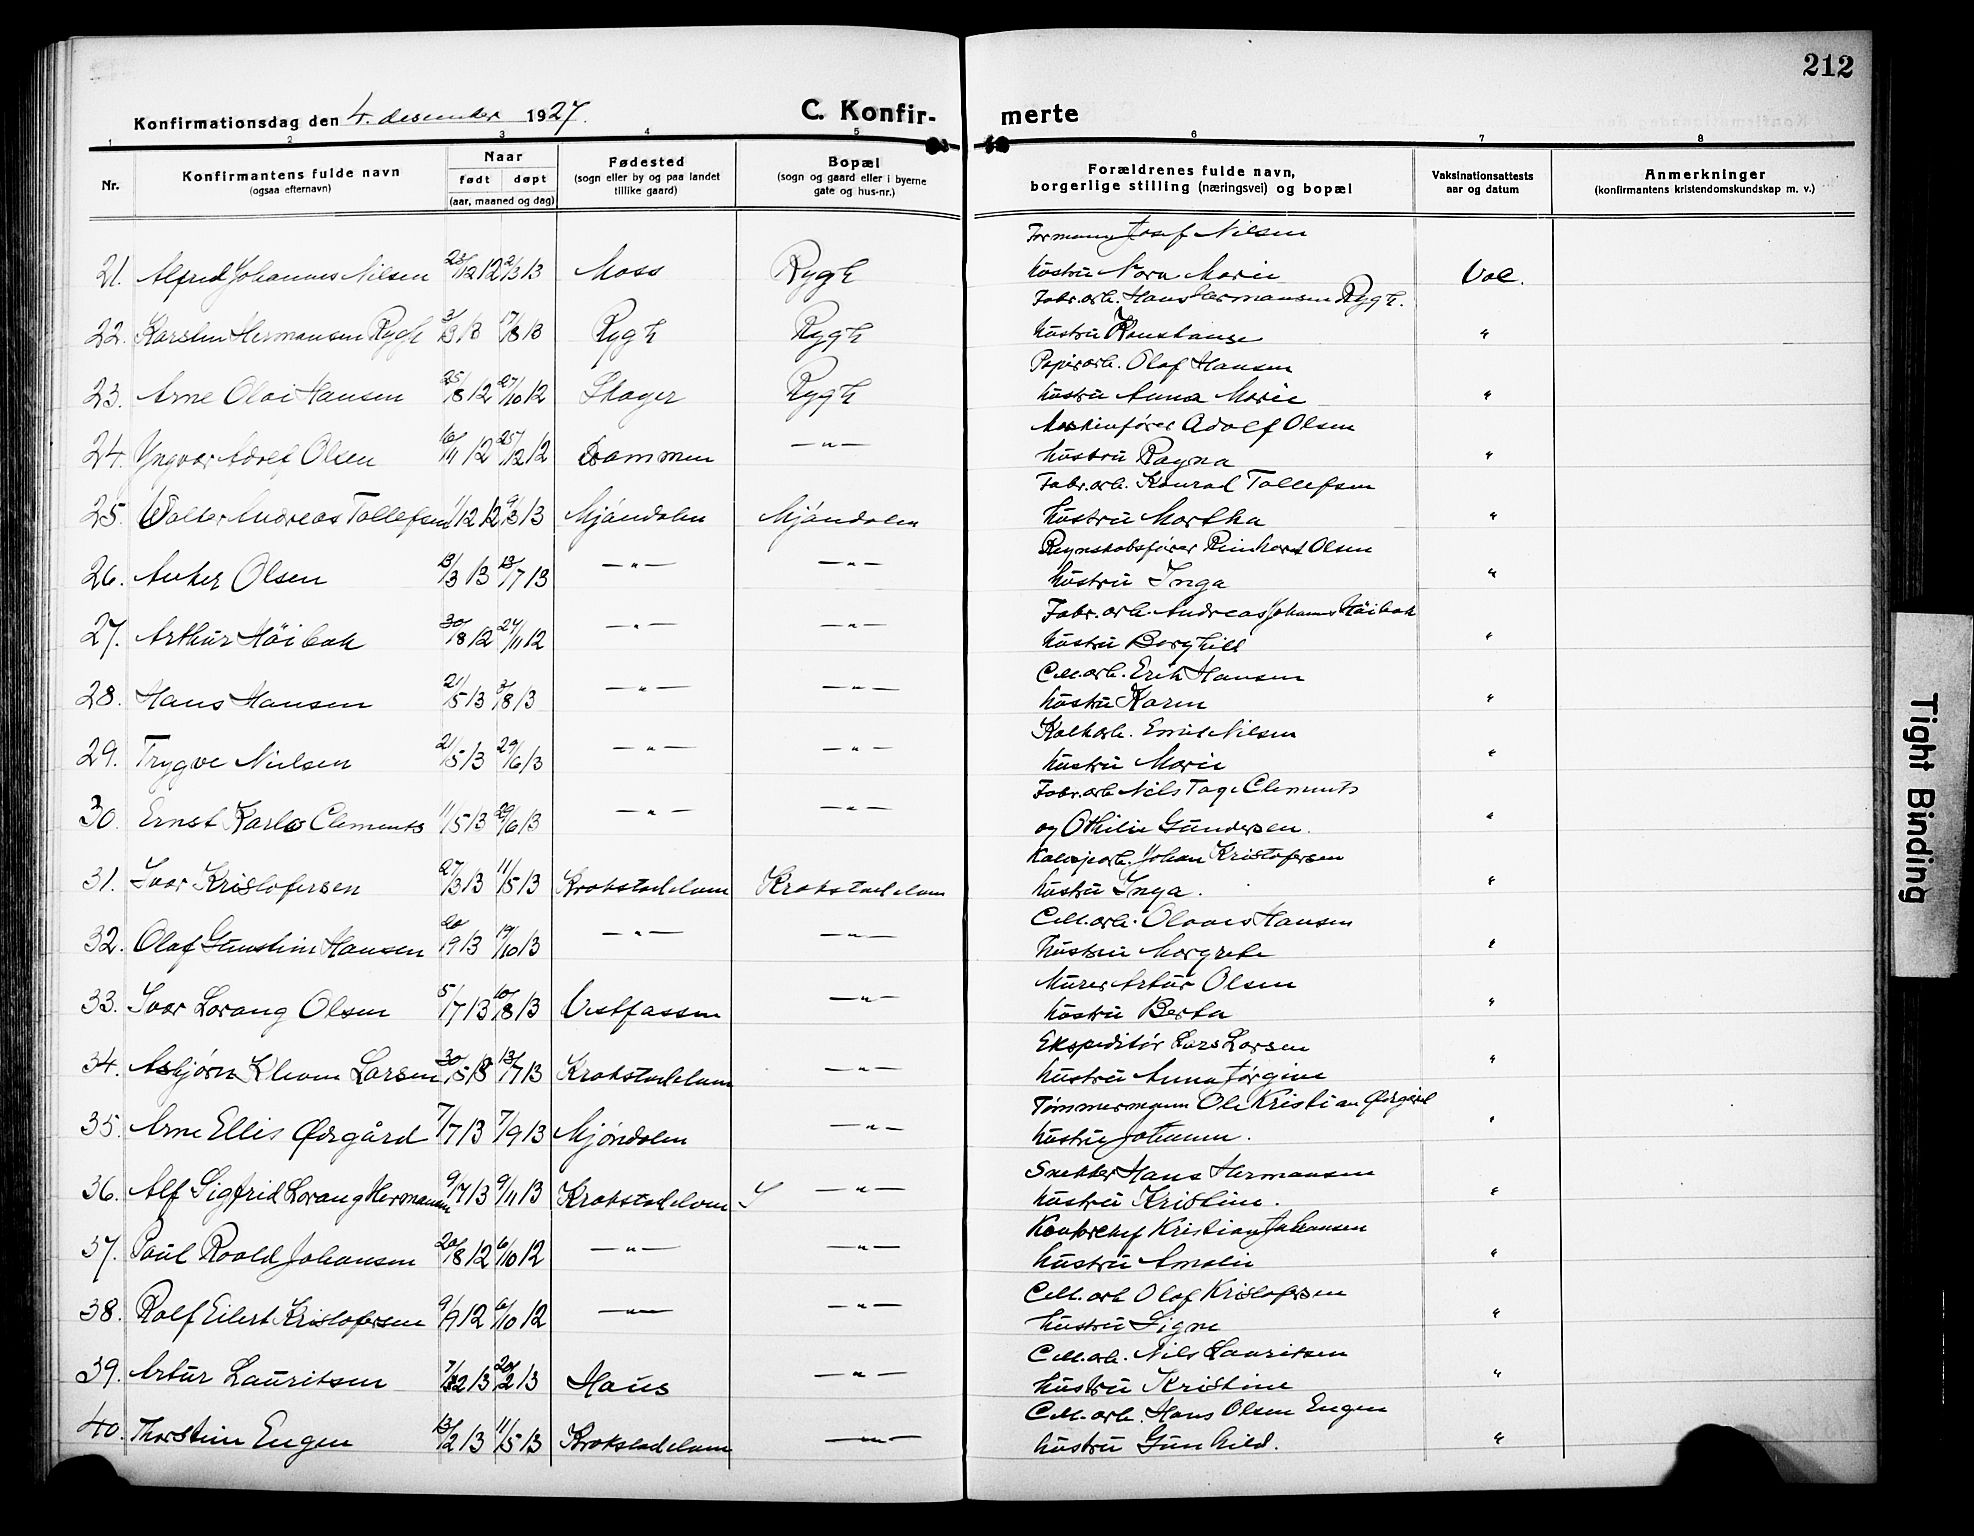 212
Konfirmationsdag den 4. desember 1927.
C. Konfirmerte
1 2 3 4 5 6 7 8
Nr.
Konfirmantens fulde navn
(ogsaa efternavn)
Naar
født døpt
(aar, maaned og dag)
Fødested
(sogn eller by og paa landet
tillike gaard)
Bopæl
(sogn og gaard eller i byerne
gate og hus-nr.)
Forældrenes fulde navn,
borgerlige stilling (næringsvei) og bopæl
Vaksinationsattests
aar og datum
Anmerkninger
(konfirmantens kristendomskundskap m. v.)
Formann Josef Nilsen
21. Alfred Johannes Nilsen 23/12 12 2/3 13 Moss Rygh hustru Nora Marie Vac.
Fabr.arb. Hans Hermansen Rygh.
22. Karsten Hermansen Rygh 3/3 13 17/8 13 Rygh Rygh hustru Konstanse "
Papirarb. Olaf Hansen
23. Arne Olai Hansen 25/8 12 27/10 12 Skoger Rygh hustru Anna Marie "
Maskinfører Adolf Olsen
24. Yngvar Adolf Olsen 16/11 12 25/12 12 Drammen —"— hustru Ragna "
Fabr.arb. Konrad Tollefsen
25. Walter Andreas Tollefsen 1/12 12 9/3 13 Mjøndalen Mjøndalen hustru Martha "
Regnskabsfører Reinhart Olsen
26. Anker Olsen 13/3 13 13/7 13 —"— —"— hustru Inga "
Fabr.arb. Andreas Johans Høibak
27. Arthur Høibak 30/8 12 24/11 12 —"— —"— hustru Borghild "
Cell.arb. Erik Hansen
28. Hans Hansen 21/5 13 3/8 13 —"— —"— hustru Karen "
Kalkarb. Emil Nilsen
29. Trygve Nielsen 21/5 13 29/6 13 —"— —"— hustru Marie "
Fabr.arb Nils Tage Clements
30. Ernst Karlo Clements 11/5 13 29/6 13 —"— —"— og Othilie Gundersen. "
Johan Kristofersen
31. Ivar Kristofersen 27/3 13 11/5 13 Krokstadelven Krokstadelven hustru Inga. "
Cell.arb. Olaves Hansen
32. Olaf Gunstein Hansen 20/9 13 19/10 13 —"— —"— hustru Margrete "
Murer Artur Olsen
33. Ivar Lorang Olsen 5/7 13 10/8 13 Vestfossen —"— hustru Berta "
Ekspeditør Lars Larsen
34. Asbjørn Kleven Larsen 30/5 13 13/7 13 Krokstadelven —"— hustru Anna Jørgine "
Tømmermann Ole Kristian Ødegård
35. Arne Ellis Ødegård 7/7 13 7/9 13 Mjøndalen —"— hustru Johanne. "
Snekker Hans Hermansen
36. Alf Sigfrid Lorang Hermansen 9/7 13 9/11 13 Krokstadelven —"— hustru Kristine. "
Kontorchef Kristian Johansen
37. Paul Roald Johansen 20/8 12 6/10 12 —"— —"— hustru Amalie "
Cell.arb Olaf Kristofersen
38. Rolf Eilert Kristofersen 9/9 12 6/10 12 —"— —"— hustru Signe "
Cell.arb. Nils Lauritsen
39. Artur Lauritsen 7/12 13 20/2 13 Haus —"— hustru Kristine "
Cell.arb. Hans Olsen Engen
40. Thorstein Engen 13/2 13 11/5 13 Krokstadelven —"— hustru Gunhild. "
Tight Binding